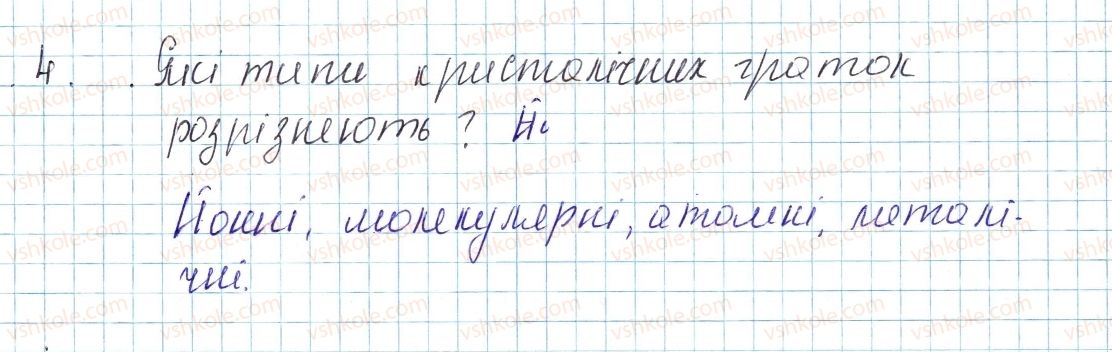 4. Які типи кристалічних граток
розрізняють? Йо
Йонні, молекулярні, атомні, металі-
чні.